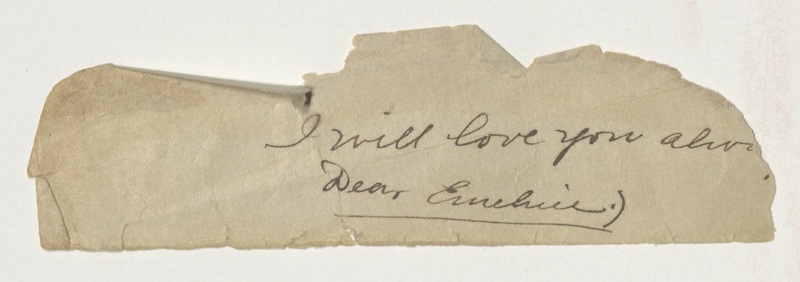 I will love you alw
Dear Emchie.)